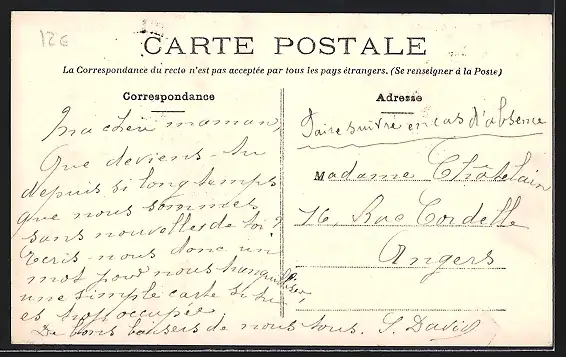 12€
CARTE POSTALE
La Correspondance du recto n'est pas acceptée par tous les pays étrangers. (Se renseigner à la Poste)
Correspondance
Ma chère maman,
Que deviens-tu
depuis si longtemps
que nous sommes
sans nouvelles de toi ?
Ecris-nous donc un
mot pour nous tranquilliser,
une simple carte si tu
es trop occupée,
De bons baisers de nous tous. S. David
Adresse
Faire suivre en cas d'absence
Madame Châtelain
16, Rue Cordelle
Angers